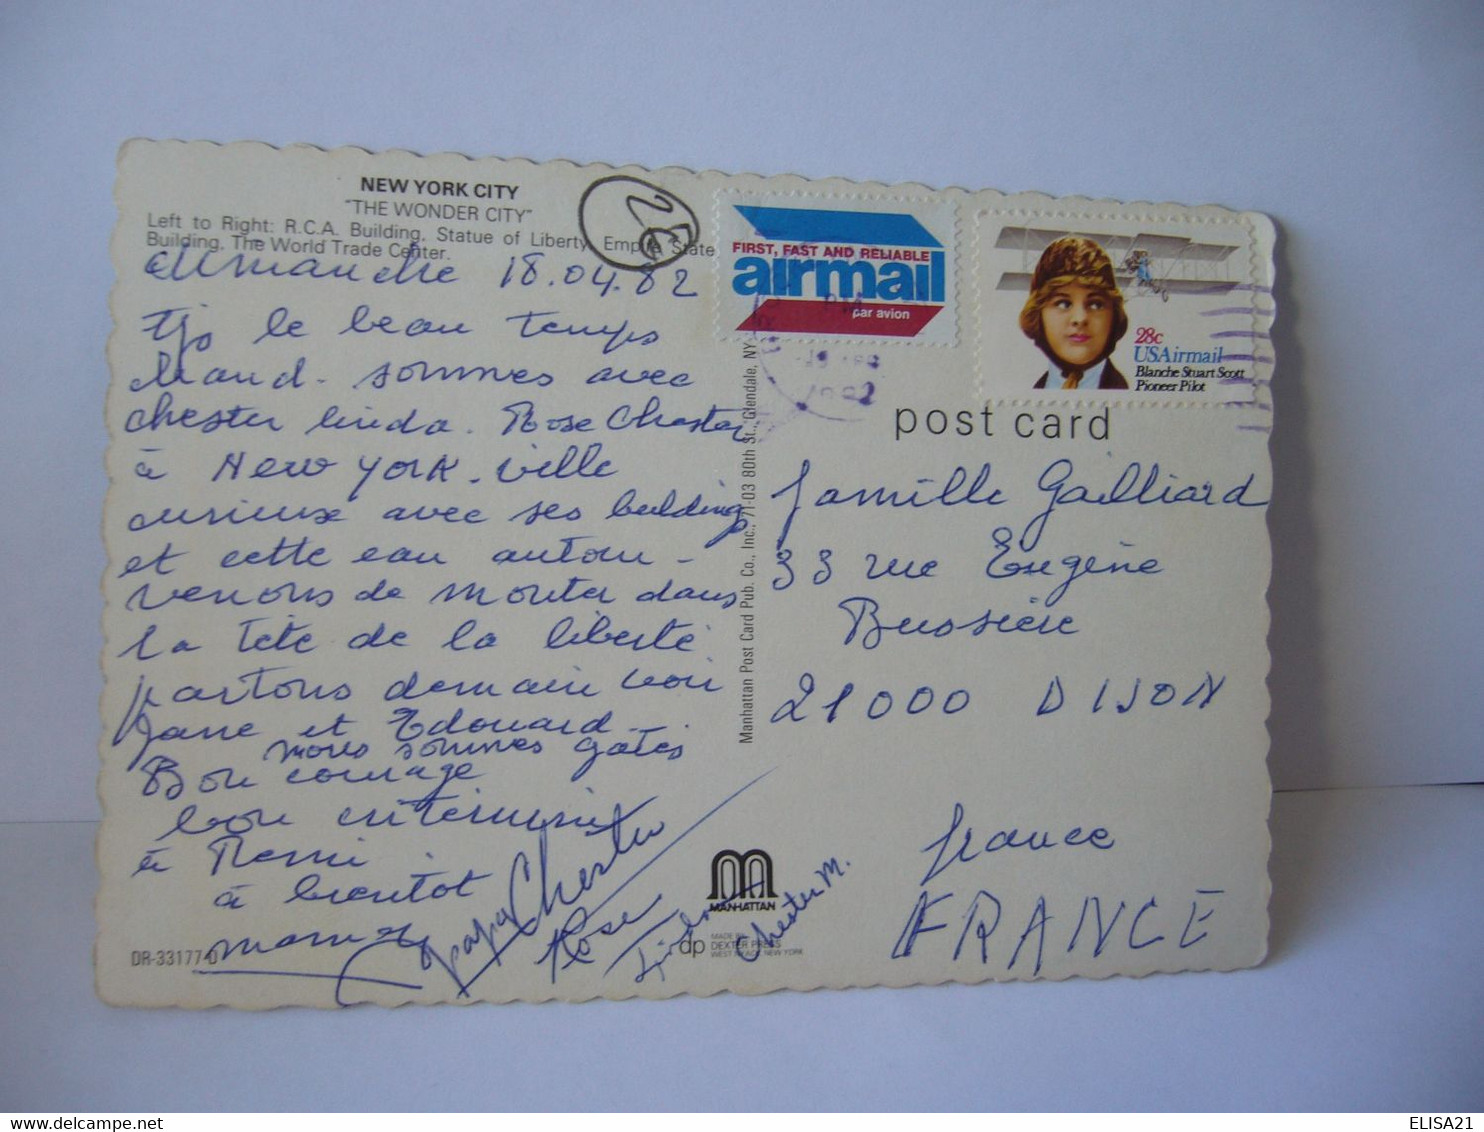 NEW YORK CITY
"THE WONDER CITY"
Left to Right: R.C.A. Building, Statue of Liberty, Empire State
Building, The World Trade Center.
25
FIRST, FAST AND RELIABLE
airmail
par avion
28c
USAirmail
Blanche Stuart Scott
Pioneer Pilot
1982
post card
dimanche 18.04.82
tjs le beau temps
chaud. sommes avec
chester linda. Rose Chester
à NEW YORK. ville
curieux avec ses building
et cette eau autour -
venons de monter dans
la tête de la liberté
partons demain voir
Jane et Edouard -
nous sommes gatés
Bon courage
bon
à Remi
à bientot
maman
papa Chester
Rose
Linda
Chester M.
famille Gailliard
33 rue Eugène
Bussière
21000 DIJON
france
FRANCE
Manhattan Post Card Pub. Co., Inc., 71-03 80th St., Glendale, NY
MANHATTAN
dp
MADE BY
DEXTER PRESS
WEST NYACK, NEW YORK
DR-33177-D
ELISA21